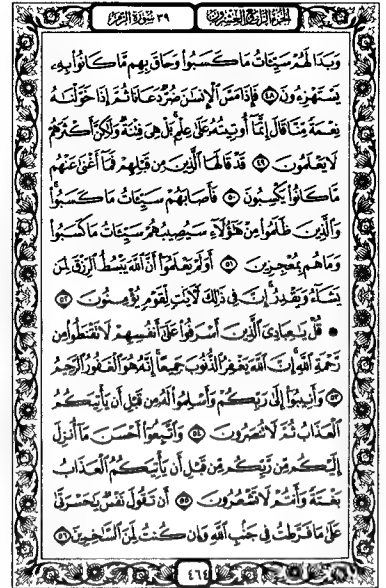 الجزء الرابع والعشرون ٣٩ سورة الزمر
وَبَدَا لَهُمْ سَيِّـَٔاتُ مَا كَسَبُوا۟ وَحَاقَ بِهِم مَّا كَانُوا۟ بِهِۦ
يَسْتَهْزِءُونَ ٤٨ فَإِذَا مَسَّ ٱلْإِنسَـٰنَ ضُرٌّ دَعَانَا ثُمَّ إِذَا خَوَّلْنَـٰهُ
نِعْمَةً مِّنَّا قَالَ إِنَّمَآ أُوتِيتُهُۥ عَلَىٰ عِلْمٍۭ بَلْ هِىَ فِتْنَةٌ وَلَـٰكِنَّ أَكْثَرَهُمْ
لَا يَعْلَمُونَ ٤٩ قَدْ قَالَهَا ٱلَّذِينَ مِن قَبْلِهِمْ فَمَآ أَغْنَىٰ عَنْهُم
مَّا كَانُوا۟ يَكْسِبُونَ ٥٠ فَأَصَابَهُمْ سَيِّـَٔاتُ مَا كَسَبُوا۟
وَٱلَّذِينَ ظَلَمُوا۟ مِنْ هَـٰٓؤُلَآءِ سَيُصِيبُهُمْ سَيِّـَٔاتُ مَا كَسَبُوا۟
وَمَا هُم بِمُعْجِزِينَ ٥١ أَوَلَمْ يَعْلَمُوٓا۟ أَنَّ ٱللَّهَ يَبْسُطُ ٱلرِّزْقَ لِمَن
يَشَآءُ وَيَقْدِرُ إِنَّ فِى ذَٰلِكَ لَـَٔايَـٰتٍ لِّقَوْمٍ يُؤْمِنُونَ ٥٢
۞ قُلْ يَـٰعِبَادِىَ ٱلَّذِينَ أَسْرَفُوا۟ عَلَىٰٓ أَنفُسِهِمْ لَا تَقْنَطُوا۟ مِن
رَّحْمَةِ ٱللَّهِ إِنَّ ٱللَّهَ يَغْفِرُ ٱلذُّنُوبَ جَمِيعًا إِنَّهُۥ هُوَ ٱلْغَفُورُ ٱلرَّحِيمُ
٥٣ وَأَنِيبُوٓا۟ إِلَىٰ رَبِّكُمْ وَأَسْلِمُوا۟ لَهُۥ مِن قَبْلِ أَن يَأْتِيَكُمُ
ٱلْعَذَابُ ثُمَّ لَا تُنصَرُونَ ٥٤ وَٱتَّبِعُوٓا۟ أَحْسَنَ مَآ أُنزِلَ
إِلَيْكُم مِّن رَّبِّكُم مِّن قَبْلِ أَن يَأْتِيَكُمُ ٱلْعَذَابُ
بَغْتَةً وَأَنتُمْ لَا تَشْعُرُونَ ٥٥ أَن تَقُولَ نَفْسٌ يَـٰحَسْرَتَىٰ
عَلَىٰ مَا فَرَّطتُ فِى جَنۢبِ ٱللَّهِ وَإِن كُنتُ لَمِنَ ٱلسَّـٰخِرِينَ ٥٦
٤٦٤